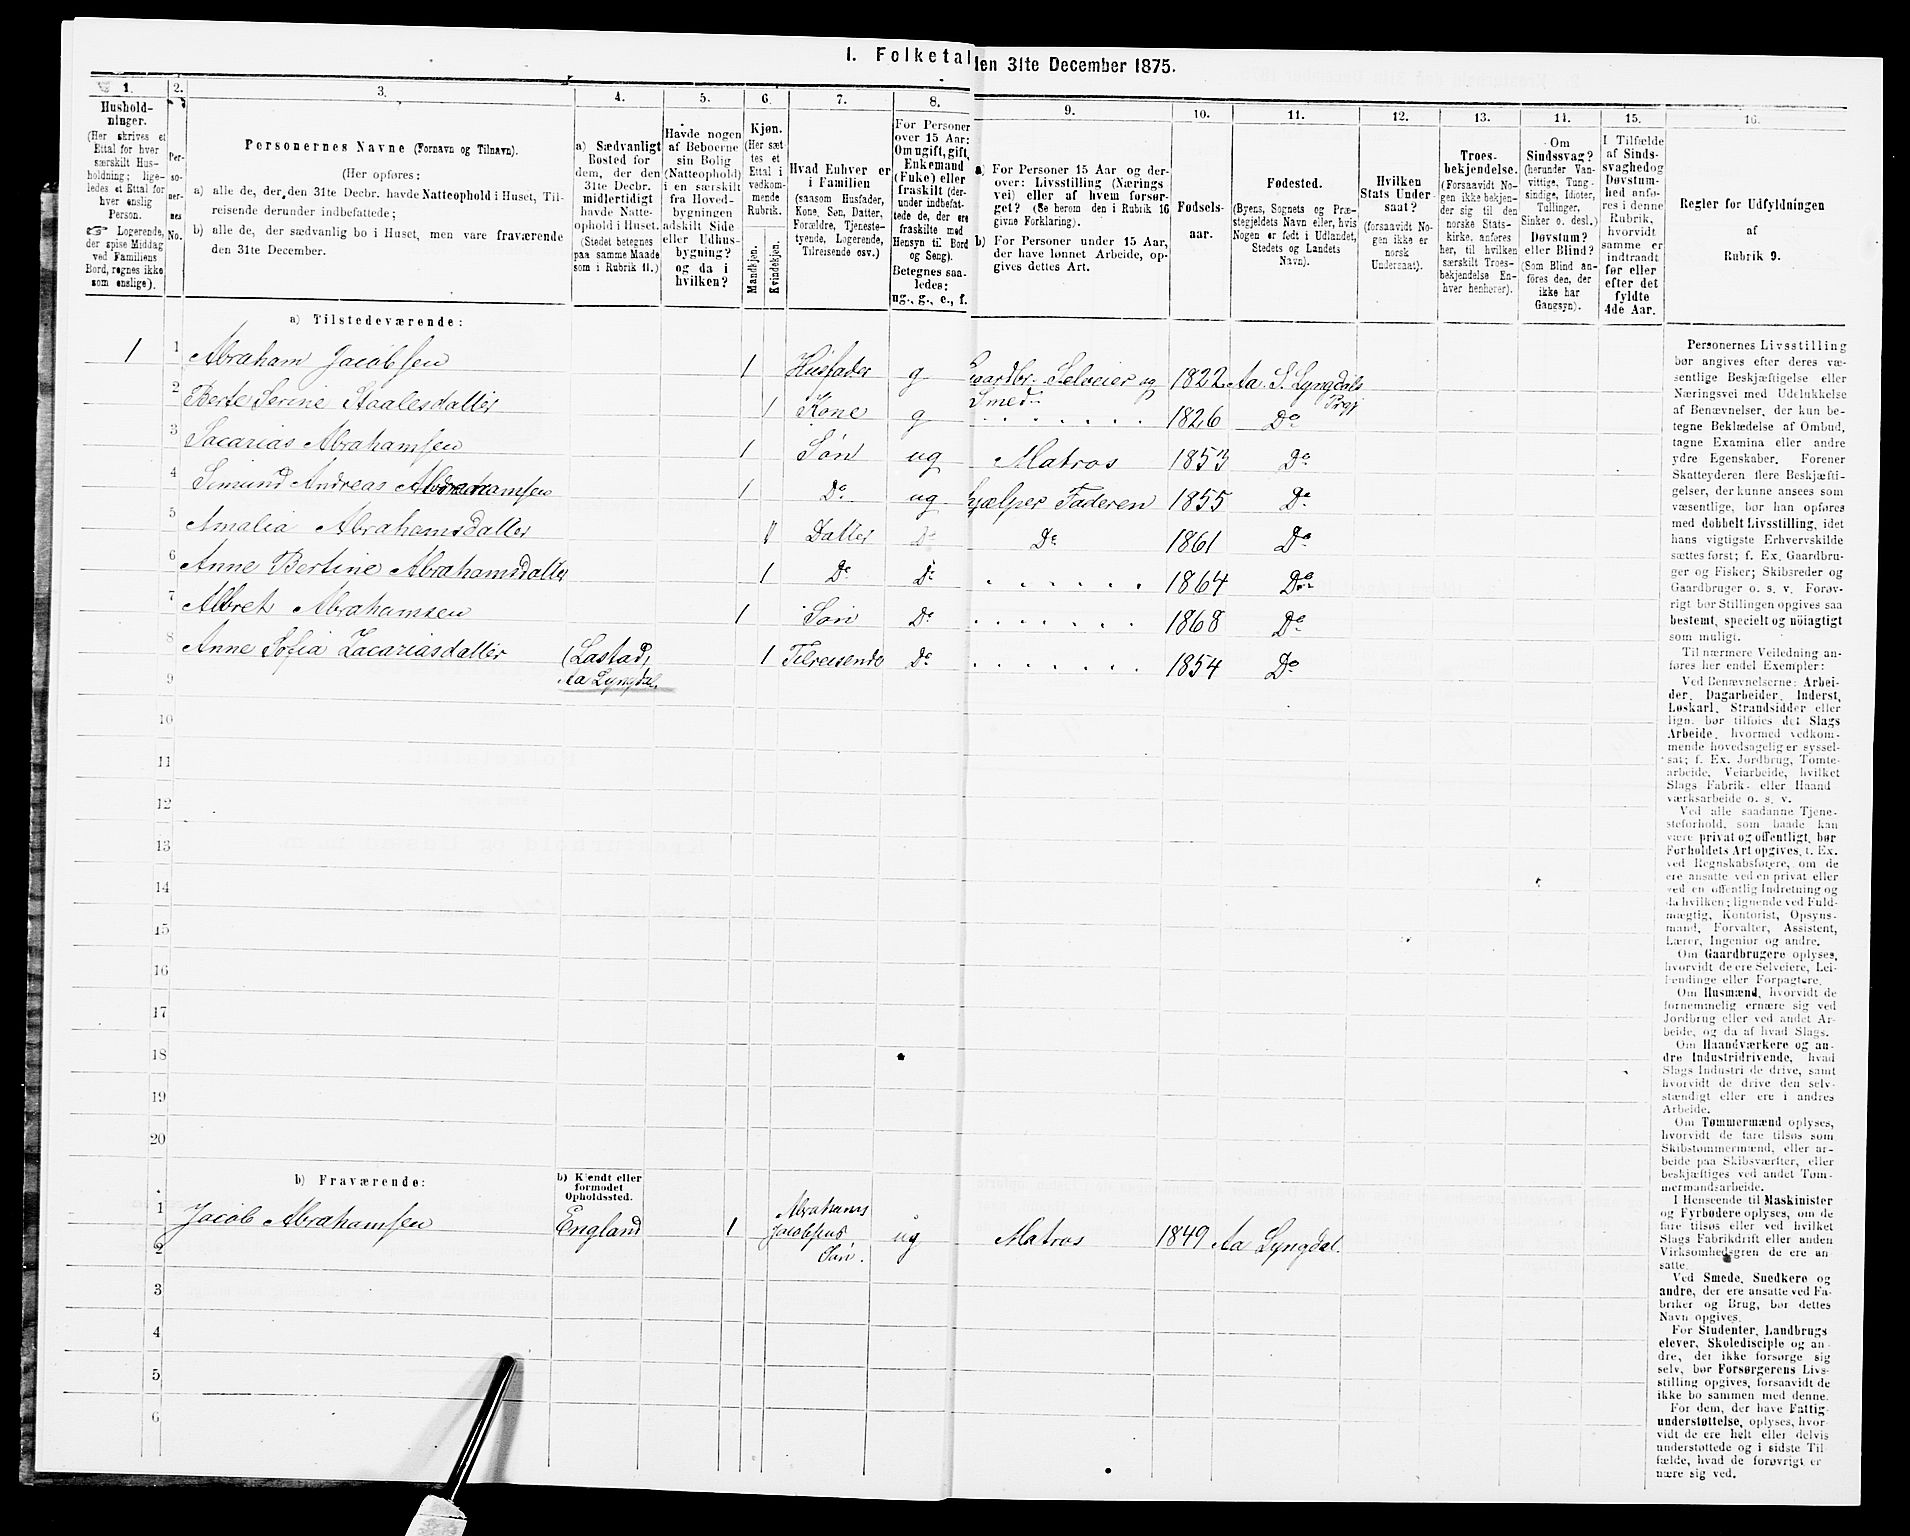 1. Folketal den 31te December 1875.
1.
Hushold-
ninger.
(Her skrives et
Ettal for hver
særskilt Hus-
holdning; lige-
ledes et Ettal for
hver enslig
Person.
☞ Logerende,
der spise Middag
ved Familiens
Bord, regnes ikke
som enslige).
2.
Per-
so-
ner-
nes
No.
3.
Personernes Navne (Fornavn og Tilnavn).
(Her opføres:
a) alle de, der den 31te Decbr. havde Natteophold i Huset, Til-
reisende derunder indbefattede;
b) alle de, der sædvanlig bo i Huset, men vare fraværende
den 31te December.
4.
a) Sædvanligt
Bosted for
dem, der den
31te Decbr.
midlertidigt
havde Natte-
ophold i Huset.
(Stedet betegnes
paa samme Maade
som i Rubrik 11.)
5.
Havde nogen
af Beboerne
sin Bolig
(Natteophold)
i en særskilt
fra Hoved-
bygningen
adskilt Side-
eller Udhus-
bygning?
og da i
hvilken?
6.
Kjøn.
(Her sæt-
tes et
Ettal i
vedkom-
mende
Rubrik.
Mandkjøn.
Kvindekjøn.
7.
Hvad Enhver er
i Familien
(saasom Husfader,
Kone, Søn, Datter,
Forældre, Tjeneste-
tyende, Logerende,
Tilreisende osv.)
8.
For Personer
over 15 Aar:
Om ugift, gift,
Enkemand
(Fuke) eller
fraskilt (der-
under indbefat-
tede de, der ere
fraskilte med
Hensyn til Bord
og Seng).
Betegnes saa-
ledes:
ug., g., e., f.
9.
a) For Personer 15 Aar og der-
over: Livsstilling (Nærings-
vei) eller af hvem forsør-
get? (Se herom den i Rubrik 16
givne Forklaring).
b) For Personer under 15 Aar,
der have lønnet Arbeide, op-
gives dettes Art.
10.
Fødsels-
aar.
11.
Fødested.
(Byens, Sognets og Præ-
stegjeldets Navn eller, hvis
Nogen er født i Udlandet,
Stedets og Landets
Navn).
12.
Hvilken
Stats Under-
saat?
(forsaavidt No-
gen ikke er
norsk
Undersaat).
13.
Troes-
bekjendelse.
(Forsaavidt No-
gen ikke bekjen-
der sig til den
norske Stats-
kirke, anføres
her, til hvilken
særskilt Troes-
bekjendelse En-
hver henhører).
14.
Om
Sindssvag?
(herunder Van-
vittige, Tung-
sindige, Idioter,
Tullinger,
Sinker o. desl.)
Døvstum?
eller Blind?
(Som Blind an-
føres den, der
ikke har
Gangsyn).
15.
I Tilfælde
af Sinds-
svaghed og
Døvstum-
hed anfø-
res i denne
Rubrik,
hvorvidt
samme er
indtraadt
før eller
efter det
fyldte
4de Aar.
16.
Regler for Udfyldningen
af
Rubrik 9.
a) Tilstedeværende:
1 1 Abraham Jacobsen 1 Husfader g Gaardbr. Selveier og Smed 1822 Aa S. Lyngdals Prgj
2 Berte Serine Staalesdatter 1 Kone g 1826 Do
3 Sacarias Abrahamsen 1 Søn ug Matros 1853 Do
4 Simund Andreas Abrahamsen 1 Do ug hjælper Faderen 1855 Do
5 Amalia Abrahamsdatter 1 Datter Do Do 1861 Do
6 Anne Bertine Abrahamsdatter 1 Do Do 1864 Do
7 Albret Abrahamsen 1 Søn Do 1868 Do
8 Anne Sofia Zacariasdatter (Lastad, Aa Lyngdal. 1 Tilreisende Do 1854 Do
9
10
11
12
13
14
15
16
17
18
19
20
b) Fraværende:
b) Kjendt eller
formodet
Opholdssted.
1 Jacob Abrahamsen England 1 Abrahams Jacobsens Søn. ug Matros 1849 Aa Lyngdal.
2
3
4
5
6
Personernes Livsstilling
bør angives efter deres væ-
sentlige Beskjæftigelse eller
Næringsvei med Udelukkelse
af Benævnelser, der kun be-
tegne Beklædelse af Ombud,
tagne Examina eller andre
ydre Egenskaber. Forener
Skatteyderen flere Beskjæfti-
gelser, der kunne ansees som
væsentlige, bør han opføres
med dobbelt Livsstilling, idet
hans vigtigste Erhvervskilde
sættes først; f. Ex. Gaardbru-
ger og Fisker; Skibsreder og
Gaardbruger o. s. v. Forøv-
rigt bør Stillingen opgives saa
bestemt, specielt og nöiagtigt
som muligt.
Til nærmere Veiledning an-
føres her endel Exempler:
Ved Benævnelserne: Arbei-
der, Dagarbeider, Inderst,
Løskarl, Strandsidder eller
lign. bør tilføies det Slags
Arbeide, hvormed vedkom-
mende hovedsagelig er syssel-
sat; f. Ex. Jordbrug, Tomte-
arbeide, Veiarbeide, hvilket
Slags Fabrik- eller Haand-
værksarbeide o. s. v.
Ved alle saadanne Tjene-
steforhold, som baade kan
være privat og offentligt, bør
Forholdets Art opgives, f. Ex.
ved Regnskabsførere, om de
ere ansatte ved en privat eller
ved en offentlig Indretning og
da hvilken; lignende ved Fuld-
mægtig, Kontorist, Opsyns-
mand, Forvalter, Assistent,
Lærer, Ingeniør og andre.
Om Gaardbrugere oplyses,
hvorvidt de ere Selveiere, Lei-
lendinge eller Forpagtere.
Om Husmænd, hvorvidt de
fornemmelig ernære sig ved
Jordbrug eller ved andet Ar-
beide, og da af hvad Slags.
Om Haandværkere og an-
dre Industridrivende, hvad
Slags Industri de drive, samt
hvorvidt de drive den selv-
stændigt eller ere i andres
Arbeide.
Om Tømmermænd oplyses,
hvorvidt de fare tilsøs som
Skibstømmermænd, eller ar-
beide paa Skibsværfter, eller
beskjæftiges ved andet Tøm-
mermandsarbeide.
I Henseende til Maskinister
og Fyrbødere oplyses, om de
fare tilsøs eller ved hvilket
Slags Fabrikdrift eller anden
Virksomhedsgren de ere an-
satte.
Ved Smede, Snedkere og
andre, der ere ansatte ved Fa-
briker og Brug, bør dettes
Navn opgives.
For Studenter, Landbrugs-
elever, Skoledisciple og an-
dre, der ikke forsørge sig
selv, bør Forsørgerens Livs-
stilling opgives, forsaavidt de
ikke bo sammen med denne.
For dem, der have Fattig-
understøttelse, oplyses, hvor-
vidt de ere helt eller delvis
understøttede og i sidste Til-
fælde, hvad de forøvrigt er-
nære sig ved.